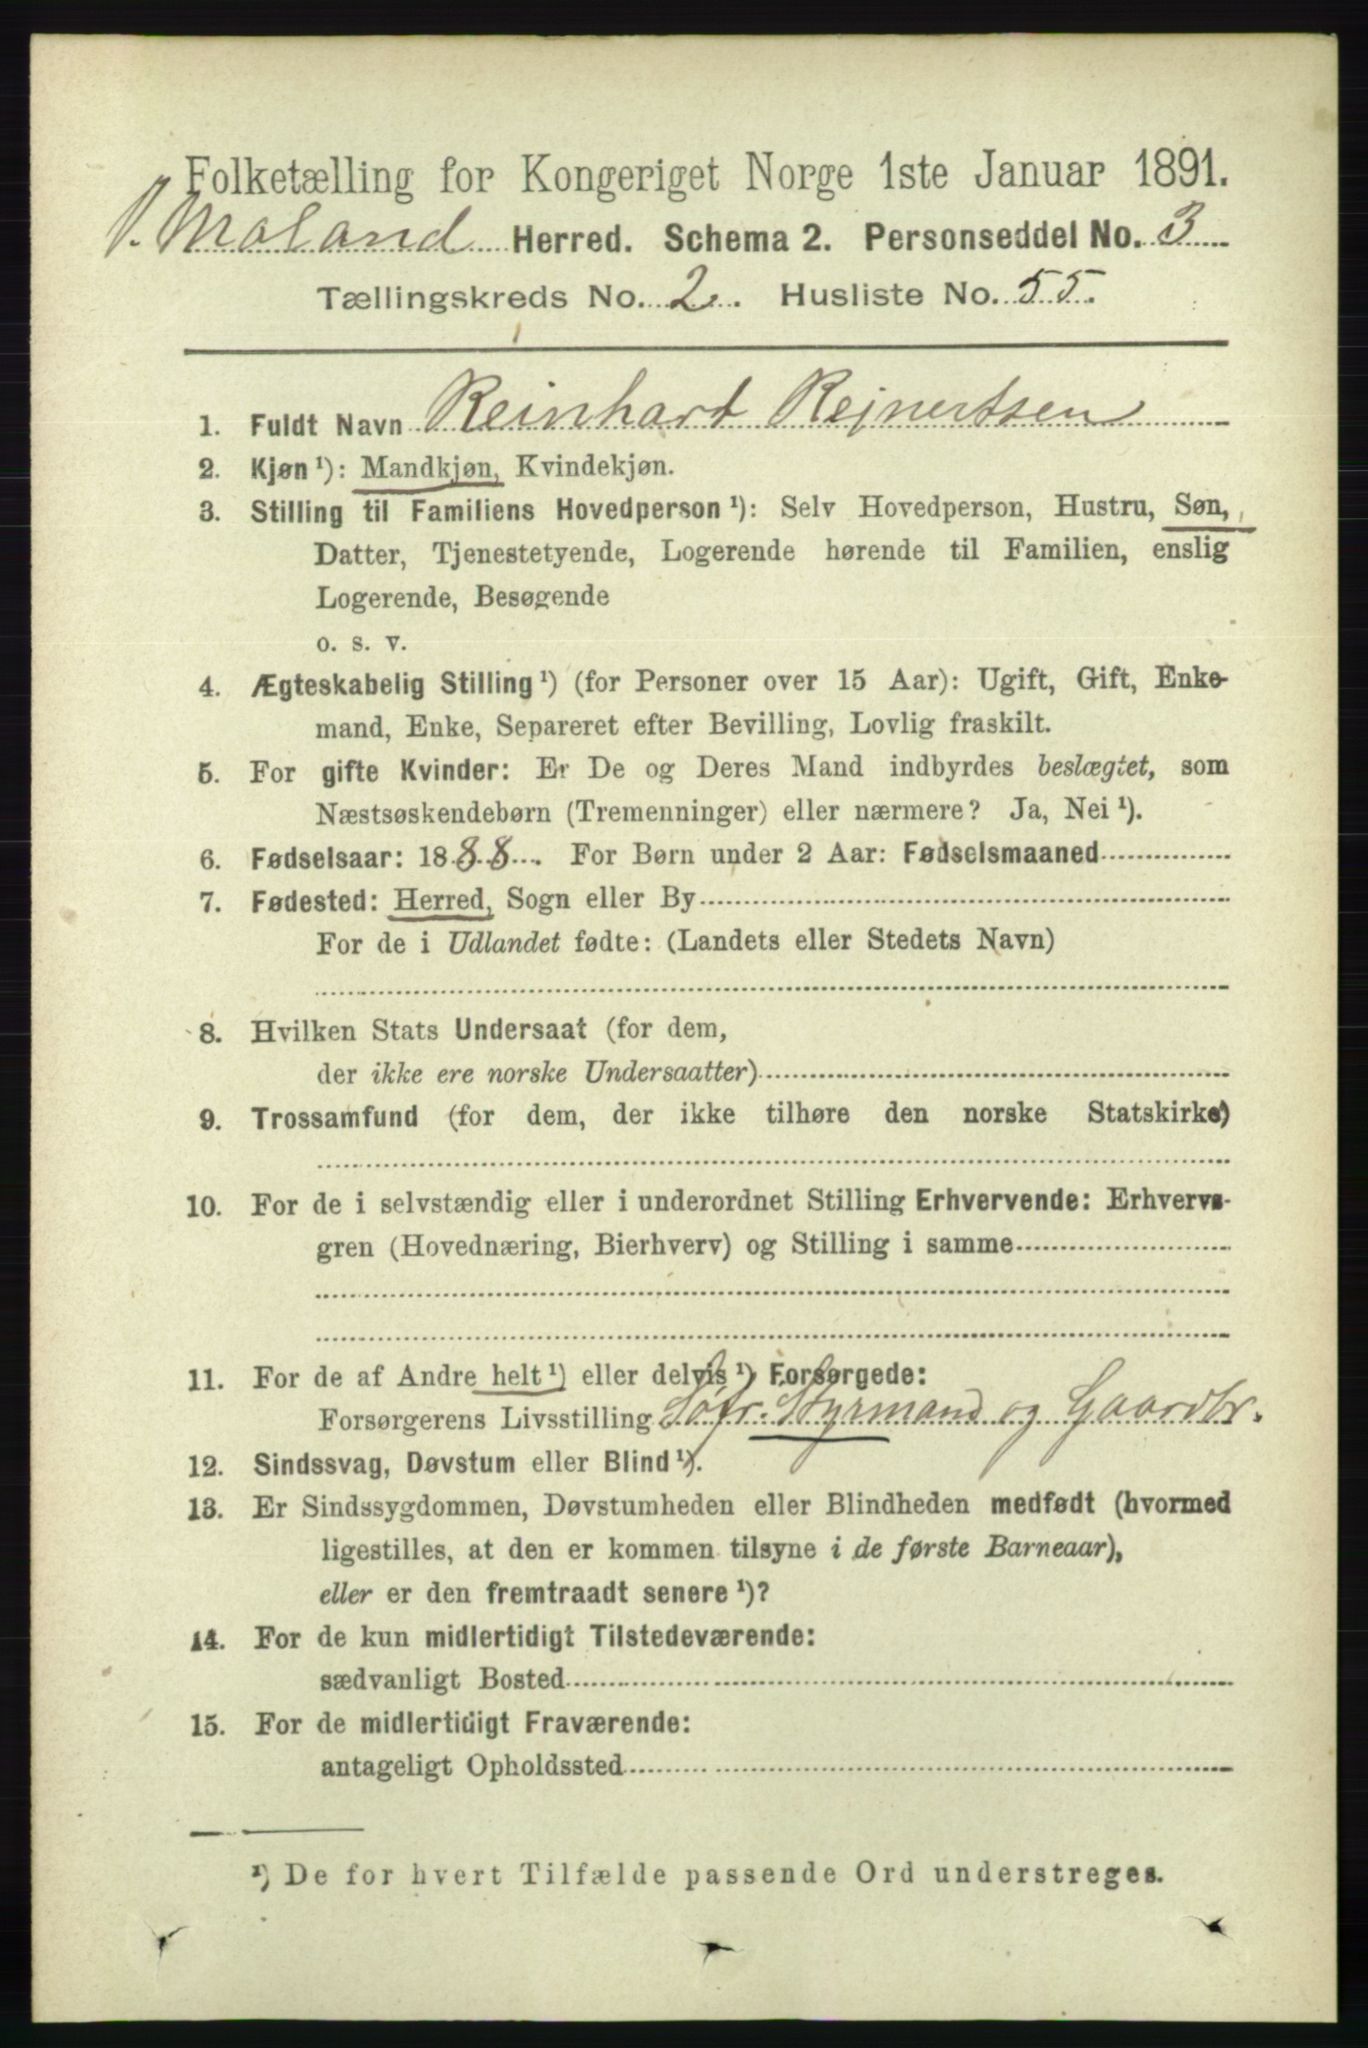 Folketælling for Kongeriget Norge 1ste Januar 1891.
V. Moland Herred. Schema 2. Personseddel No. 3
Tællingskreds No. 2. Husliste No. 55.
1. Fuldt Navn Reinhart Rejnertsen
2. Kjøn ¹): Mandkjøn, Kvindekjøn.
3. Stilling til Familiens Hovedperson ¹): Selv Hovedperson, Hustru, Søn,
Datter, Tjenestetyende, Logerende hørende til Familien, enslig
Logerende, Besøgende
o. s. v.
4. Ægteskabelig Stilling ¹) (for Personer over 15 Aar): Ugift, Gift, Enke-
mand, Enke, Separeret efter Bevilling, Lovlig fraskilt.
5. For gifte Kvinder: Er De og Deres Mand indbyrdes beslægtet, som
Næstsøskendebørn (Tremenninger) eller nærmere? Ja, Nei ¹).
6. Fødselsaar: 1888. For Børn under 2 Aar: Fødselsmaaned
7. Fødested: Herred, Sogn eller By
For de i Udlandet fødte: (Landets eller Stedets Navn)
8. Hvilken Stats Undersaat (for dem,
der ikke ere norske Undersaatter)
9. Trossamfund (for dem, der ikke tilhøre den norske Statskirke)
10. For de i selvstændig eller i underordnet Stilling Erhvervende: Erhvervs-
gren (Hovednæring, Bierhverv) og Stilling i samme
11. For de af Andre helt ¹) eller delvis ¹) Forsørgede:
Forsørgerens Livsstilling Søfr. Styrmand og Gaardbr.
12. Sindssvag, Døvstum eller Blind ¹).
13. Er Sindssygdommen, Døvstumheden eller Blindheden medfødt (hvormed
ligestilles, at den er kommen tilsyne i de første Barneaar),
eller er den fremtraadt senere ¹)?
14. For de kun midlertidigt Tilstedeværende:
sædvanligt Bosted
15. For de midlertidigt Fraværende:
antageligt Opholdssted
¹) De for hvert Tilfælde passende Ord understreges.